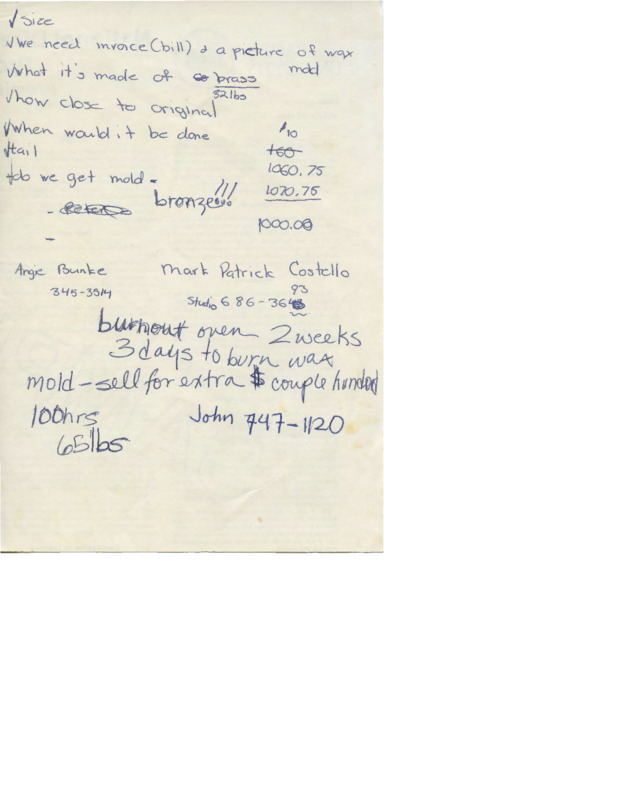 √ Size
√ we need invoice (bill) & a picture of wax mold
√ what it's made of brass
52 lbs
√ how close to original
√ when would it be done
√ tail
1060.75
√ do we get mold -
1070.75
- bronze!!!
1000.00
-
Angie Bunke
Mark Patrick Costello
345-3514
93
Studio 686-36
burnout oven 2 weeks
3 days to burn wax
mold - sell for extra $ couple hundred
100 hrs
John 747-1120
65 lbs